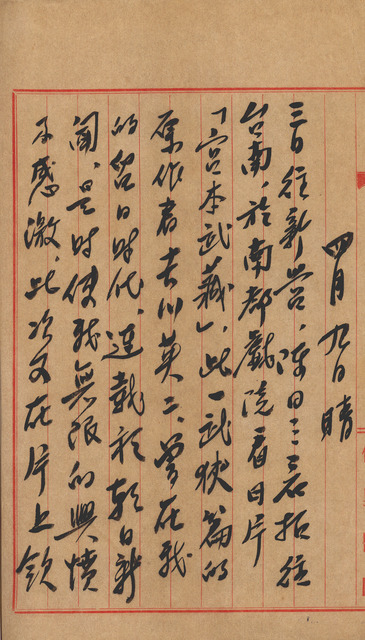 四月九日晴
三日往新營,陳日三君招往
台南,於南都戲院看日片
「宮本武藏」,此一武俠篇的
原作者吉川英二,曾在我
的留日時代,連載於朝日新
聞,是時使我無限的興憤
不感激,此次又在片上欽